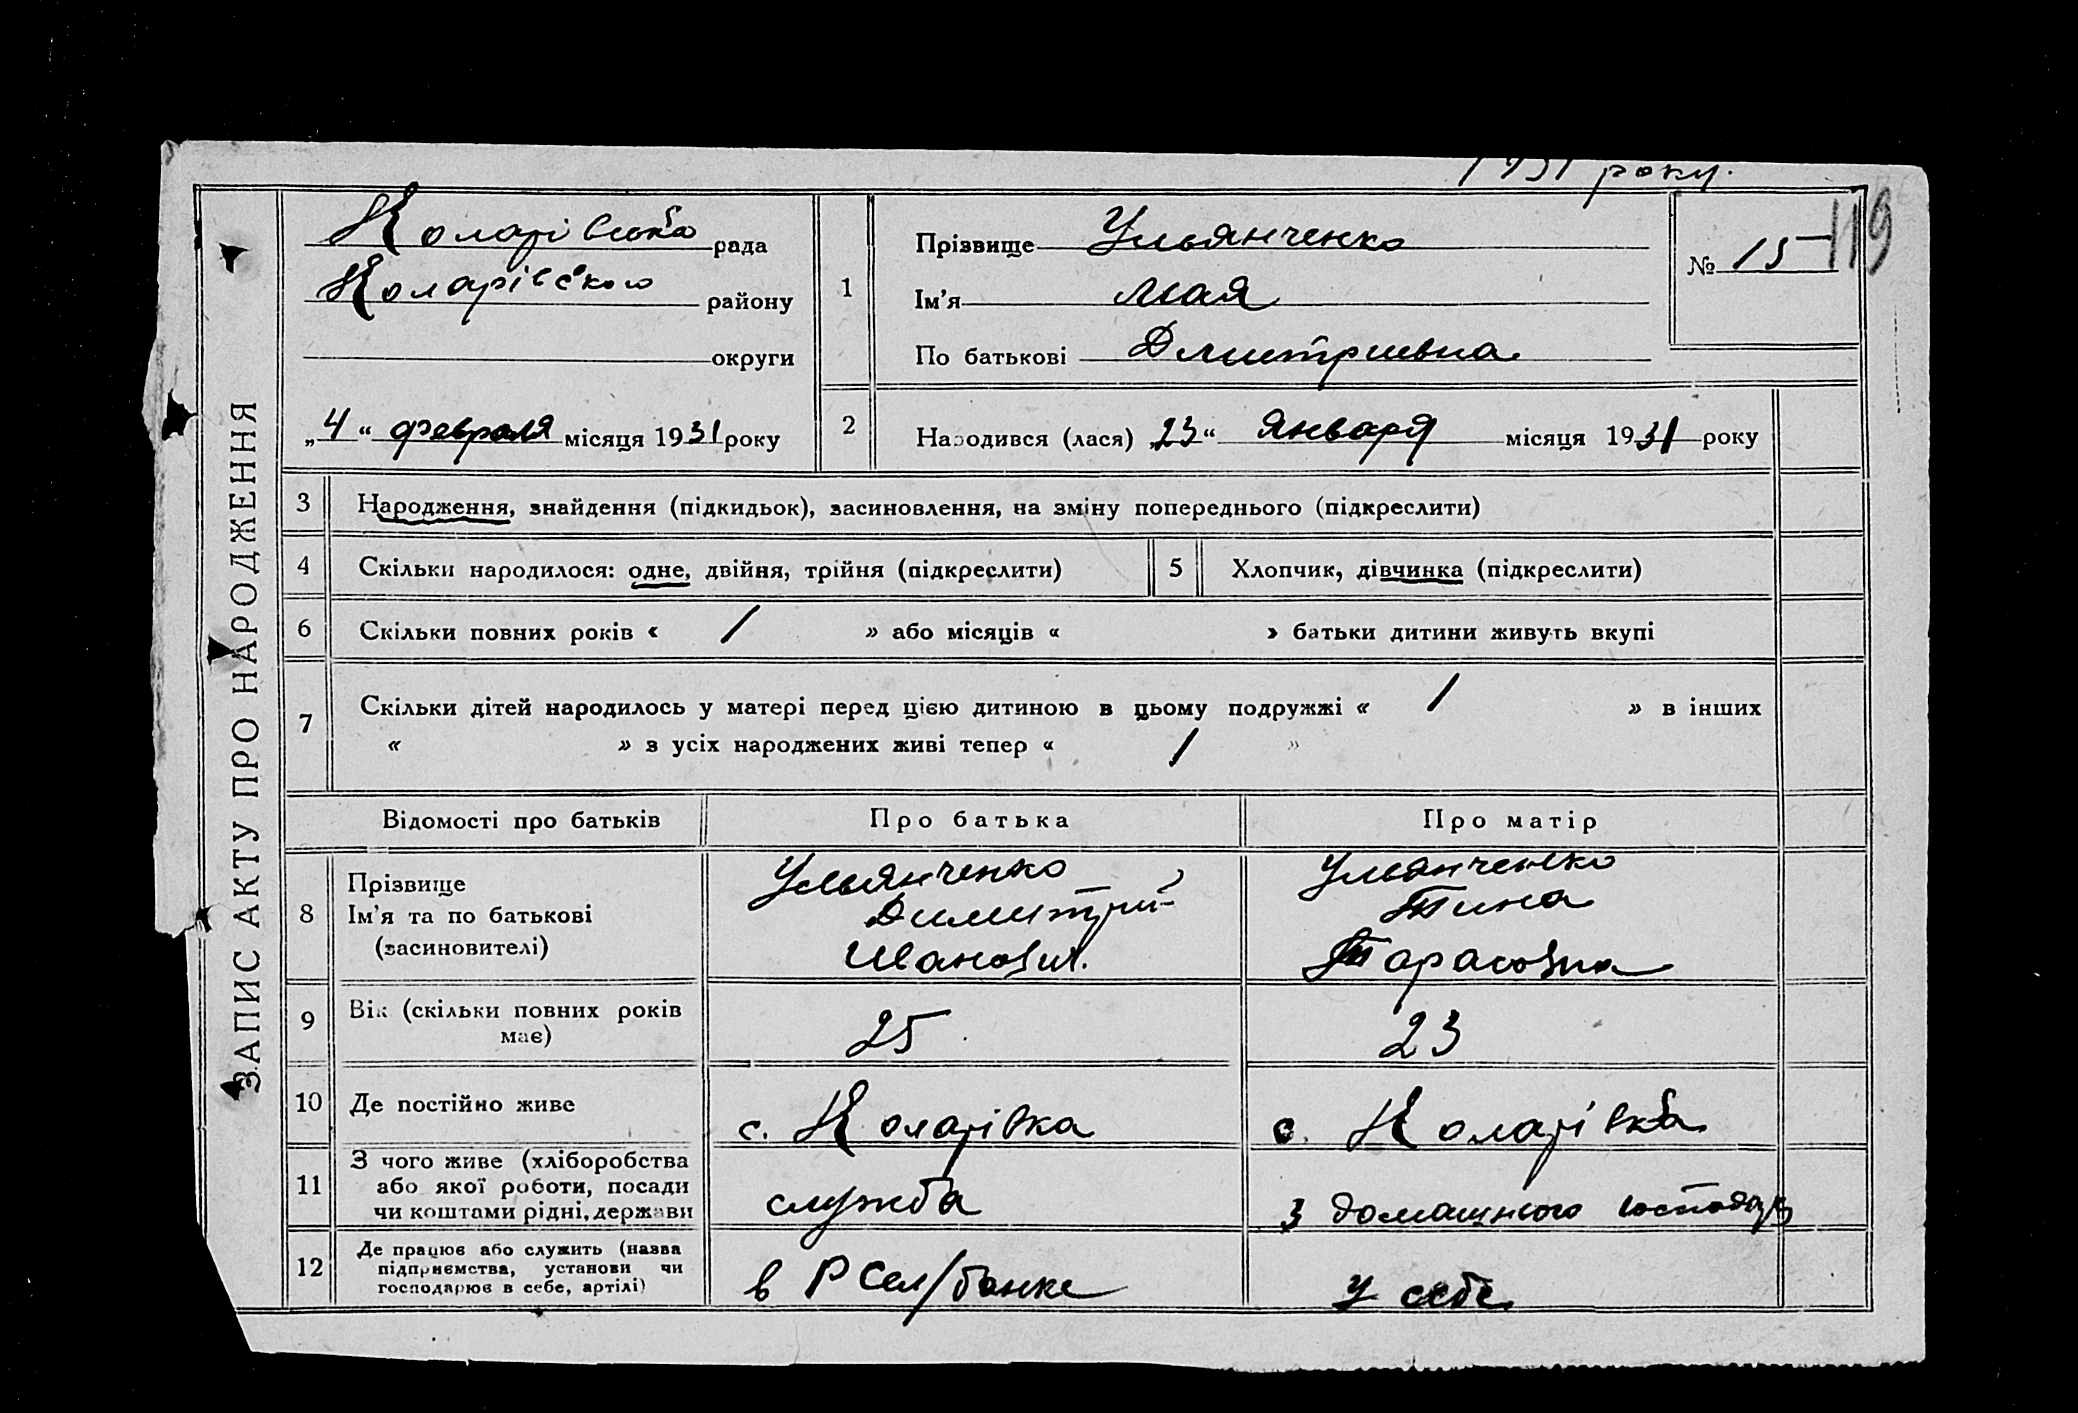 1931 року.
ЗАПИС АКТУ ПРО НАРОДЖЕННЯ
Коларівська рада
Коларівського району
округи
„4“ февраля місяця 1931 року
1
Прізвище Ульянченко
Ім’я Мая
По батькові Дмитриевна
№ 15
119
2
Народився (лася) „23“ января місяця 1931 року
3 Народження, знайдення (підкидьок), засиновлення, на зміну попереднього (підкреслити)
4 Скільки народилося: одне, двійня, трійня (підкреслити)
5 Хлопчик, дівчинка (підкреслити)
6 Скільки повних років « 1 » або місяців « » батьки дитини живуть вкупі
7 Скільки дітей народилось у матері перед цією дитиною в цьому подружжі « 1 » в інших
« » з усіх народжених живі тепер « 1 »
Відомості про батьків Про батька Про матір
8 Прізвище
Ім’я та по батькові
(засиновителі)
Ульянченко
Димитрий
Иванович.
Ульянченко
Тина
Тарасовна
9 Вік (скільки повних років
має)
25
23
10 Де постійно живе
с. Коларівка
с. Коларівка
11 З чого живе (хліборобства
або якої роботи, посади
чи коштами рідні, держави
служба
з домашнього господар
12 Де працює або служить (назва
підприємства, установи чи
господарює в себе, артілі)
в РСел/банке
у себе